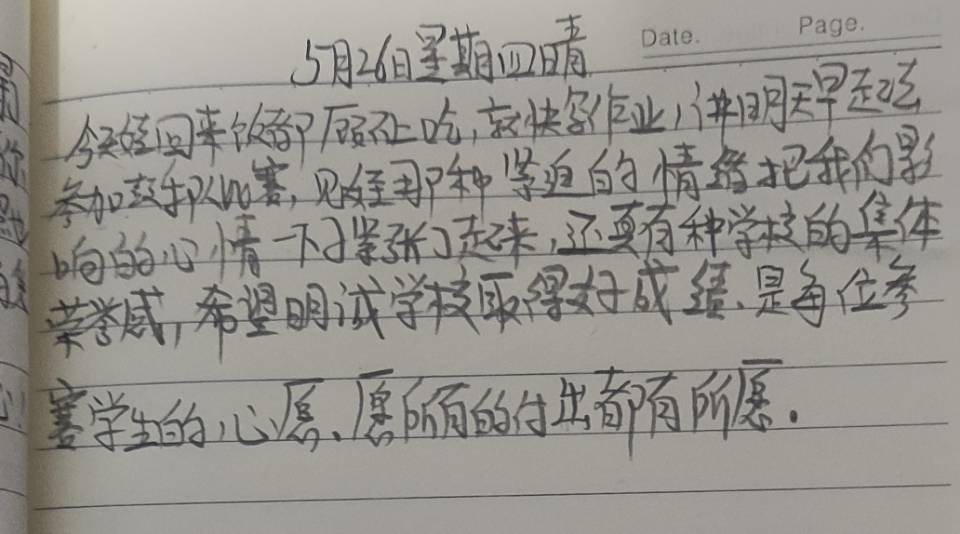 Date. Page.
5月26日星期四晴
今天娃回来饭都顾不上吃,就快写作业,讲明天早起去
参加鼓号队比赛,见娃那种紧迫的情绪把我们影
响的心情一下子紧张了起来,还真有种学校的集体
荣誉感,希望明诚学校取得好成绩、是每位参
赛学生的心愿、愿所有的付出都有所愿.